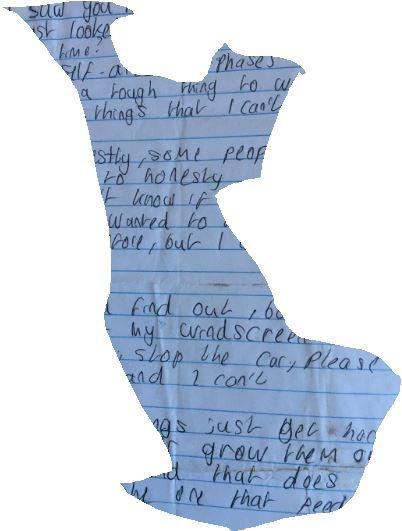 saw you
st looke
time?
elf-a phases
a tough thing to w
things that I can't
stly, some peop
to honesty
t know if
wanted to
fore, but I
find out, bu
my windscreen
, stop the car, please
and I can't
ngs just get har
grow them o
d that does
he one that peop